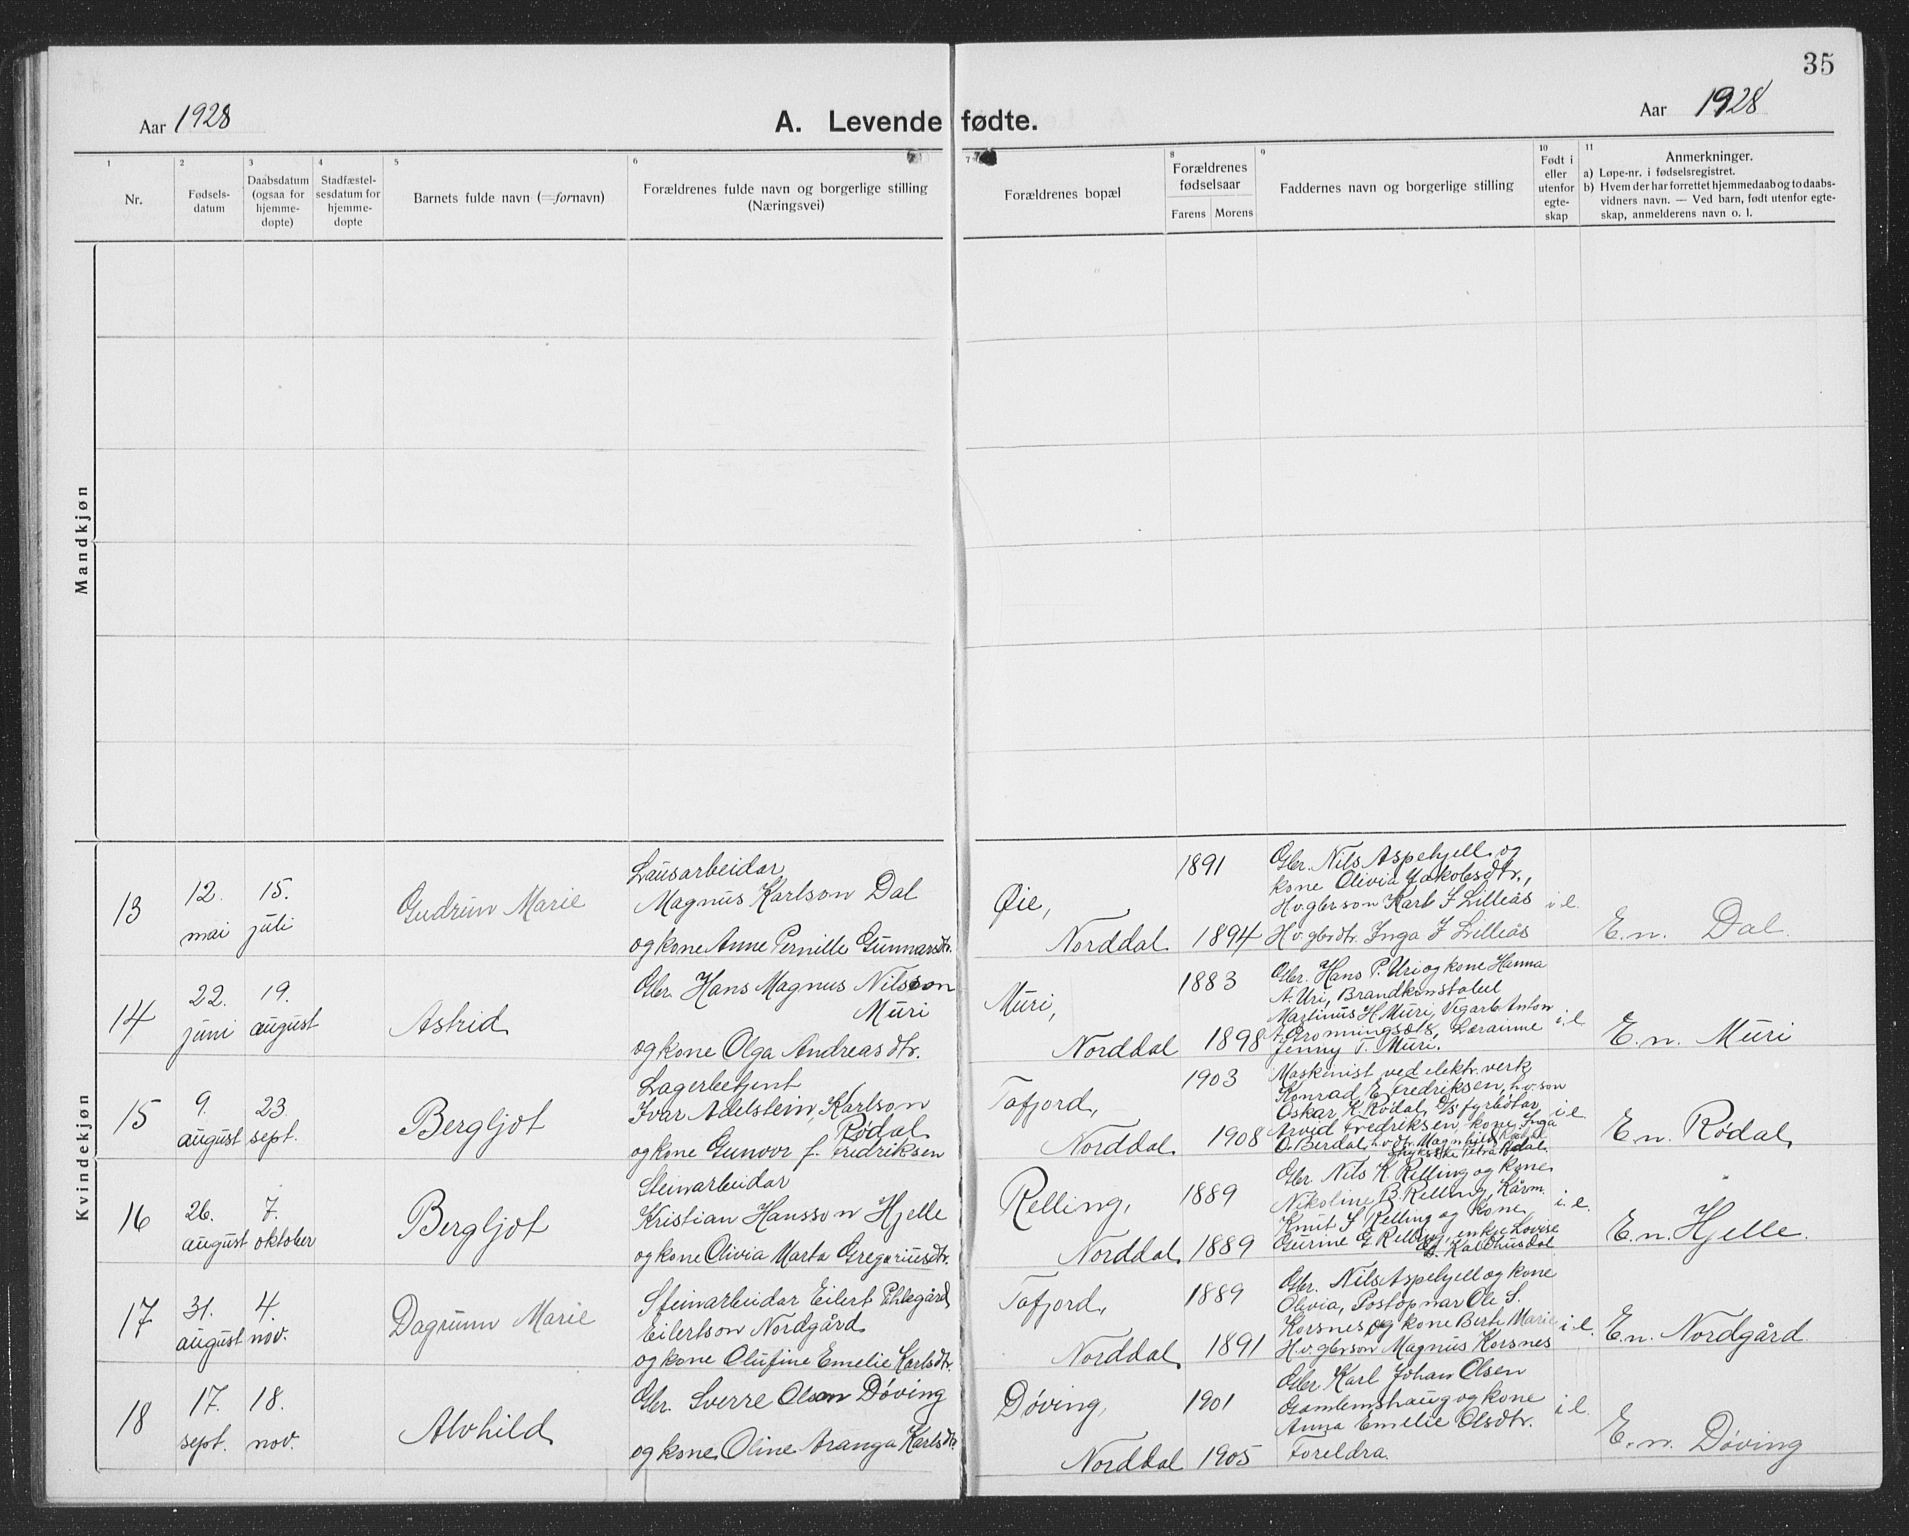 35
Aar 1928
A. Levende fødte.
Aar 1928
1
Nr.
2
Fødsels-
datum
3
Daabsdatum
(ogsaa for
hjemme-
døpte)
4
Stadfæstel-
sesdatum for
hjemme-
døpte
5
Barnets fulde navn (=fornavn)
6
Forældrenes fulde navn og borgerlige stilling
(Næringsvei)
7
Forældrenes bopæl
8
Forældrenes
fødselsaar
Farens Morens
9
Faddernes navn og borgerlige stilling
10
Født i
eller
utenfor
egte-
skap
11
Anmerkninger.
a) Løpe-nr. i fødselsregistret.
b) Hvem der har forrettet hjemmedaab og to daabs-
vidners navn. — Ved barn, født utenfor egte-
skap, anmelderens navn o. l.
Mandkjøn
Kvindekjøn
13
12.
mai
15.
juli
Gudrun Marie
Lausarbeidar
Magnus Karlson Dal
og kone Anne Pernille Gunnarsdtr.
Øie,
Norddal
1891
1894
Gbr. Nils Aspehjell og
kone Olivia Jakobsdtr.,
H.v.gbr.son Karl J Lilleås
H.v.gbrdtr. Inga J Lilleås
i e.
E. n. Dal.
14
22.
juni
19.
august
Astrid
Gbr. Hans Magnus Nilsson
Muri
og kone Olga Andreasdtr.
Muri,
Norddal
1883
1898
Gbr. Hans P. Uri og kone Hanna
A. Uri, Brandkonstabel
Martinus H. Muri, Vegarb. Anton
A. Grønningsæt, Lærarinne
Jenny T. Muri.
i e
E. n. Muri
15
9.
august
23.
sept.
Bergljot
Lagerbetjent
Ivar Adelstein Karlson
Rødal
og kone Gunvor f. Fredriksen
Tafjord,
Norddal
1903
1908
Maskenist ved elektr. verk
Konrad E. Fredriksen, h.v. son
Oskar K. Rødal, D/s fyrbøtar
Arvid Fredriksen kone Inga
O. Berdal, h.v.dtr. Magnhild
Petra Rødal.
i e
E. n. Rødal
16
26.
august
7.
oktober
Bergljot
Steinarbeidar
Kristian Hansson Hjelle
og kone Olivia Marta Gregoriusdtr.
Relling,
Norddal
1889
1889
Gbr. Nils K. Relling og kone
Nikoline B. Relling, Kårm.
Knut S. Relling og kone
Gurine G Relling, enkje Lovise
Kaldhusdal
i e.
E. n. Hjelle.
17
31.
august
4.
nov.
Dagrunn Marie
Steinarbeidar Eilert Ehlegård
Eilertson Nordgård
og kone Olufine Emelie Karlsdtr.
Tafjord,
Norddal
1889
1891
Gbr. Nils Aspehjell og kone
Olivia, Postopnar Ole S.
Korsnes og kone Berte Marie
H.v.gbrson Magnus Korsnes
i e.
E. n. Nordgård.
18
17.
sept.
18.
nov.
Alvhild
Gbr. Sverre Olsen Døving
og kone Oline Aranga Karlsdtr
Døving,
Norddal
1901
1905
Gbr. Karl Johan Olsen
Gamlemshaug og kone
Anna Emelie Olsdtr.
Foreldra.
i e.
E. n. Døving